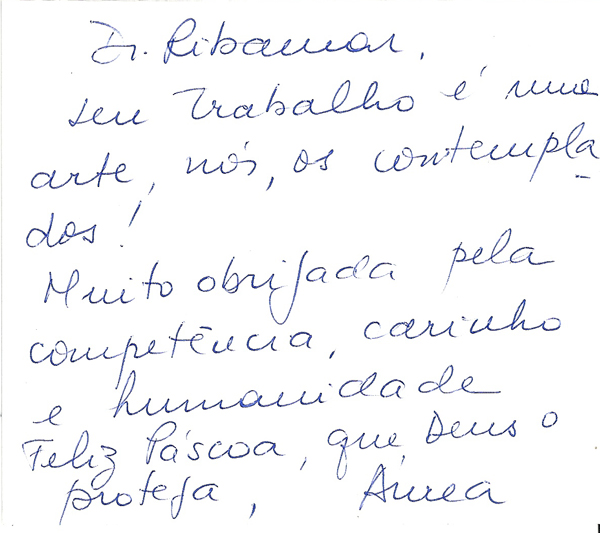 Dr. Ribamar,
seu trabalho é uma
arte, nós, os contempla
dos!
Muito obrigada pela
competência, carinho
e humanidade
Feliz Páscoa, que Deus o
proteja, Áurea